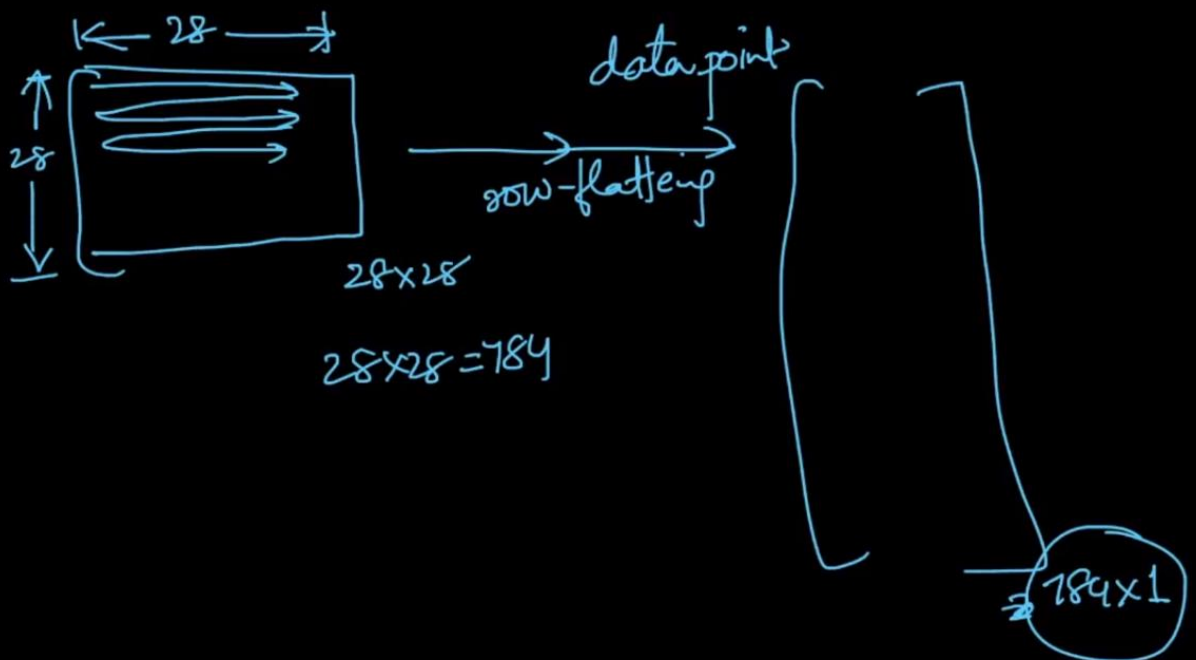 28
28
data point
row-flatteing
28×28
28×28=784
784×1